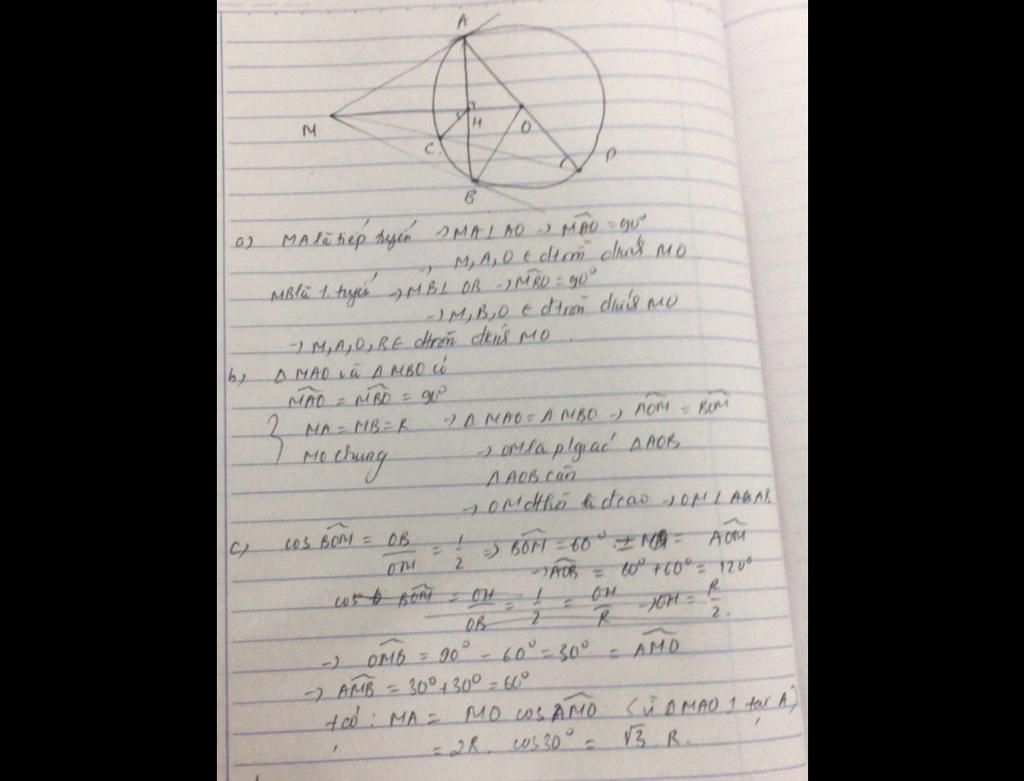 A
M
H
O
C
D
B
a) MA là tiếp tuyến → MA ⊥ AO → \widehat{MAO} = 90°
→ M, A, O ∈ đtròn đkính MO
MB là t. tuyến → MB ⊥ OB → \widehat{MBO} = 90°
→ M, B, O ∈ đtròn đkính MO
→ M, A, O, B ∈ đtròn đkính MO.
b) Δ MAO và Δ MBO có
\widehat{MAO} = \widehat{MBO} = 90°
MA = MB = R → Δ MAO = Δ MBO → \widehat{AOM} = \widehat{BOM}
MO chung → OM là p/giác ΔAOB
ΔAOB cân
→ OM đthời là đcao → OM ⊥ AB
c) cos \widehat{BOM} = OB/OM = 1/2 ⇒ \widehat{BOM} = 60° = \widehat{AOM}
→ \widehat{AOB} = 60° + 60° = 120°
cos \widehat{BOM} = OH/OB = 1/2 = OH/R → OH = R/2.
→ \widehat{OMB} = 90° - 60° = 30° = \widehat{AMO}
→ \widehat{AMB} = 30° + 30° = 60°
+ có: MA = MO cos \widehat{AMO} (vì Δ MAO ⊥ tại A)
= 2R. cos30° = √3. R.